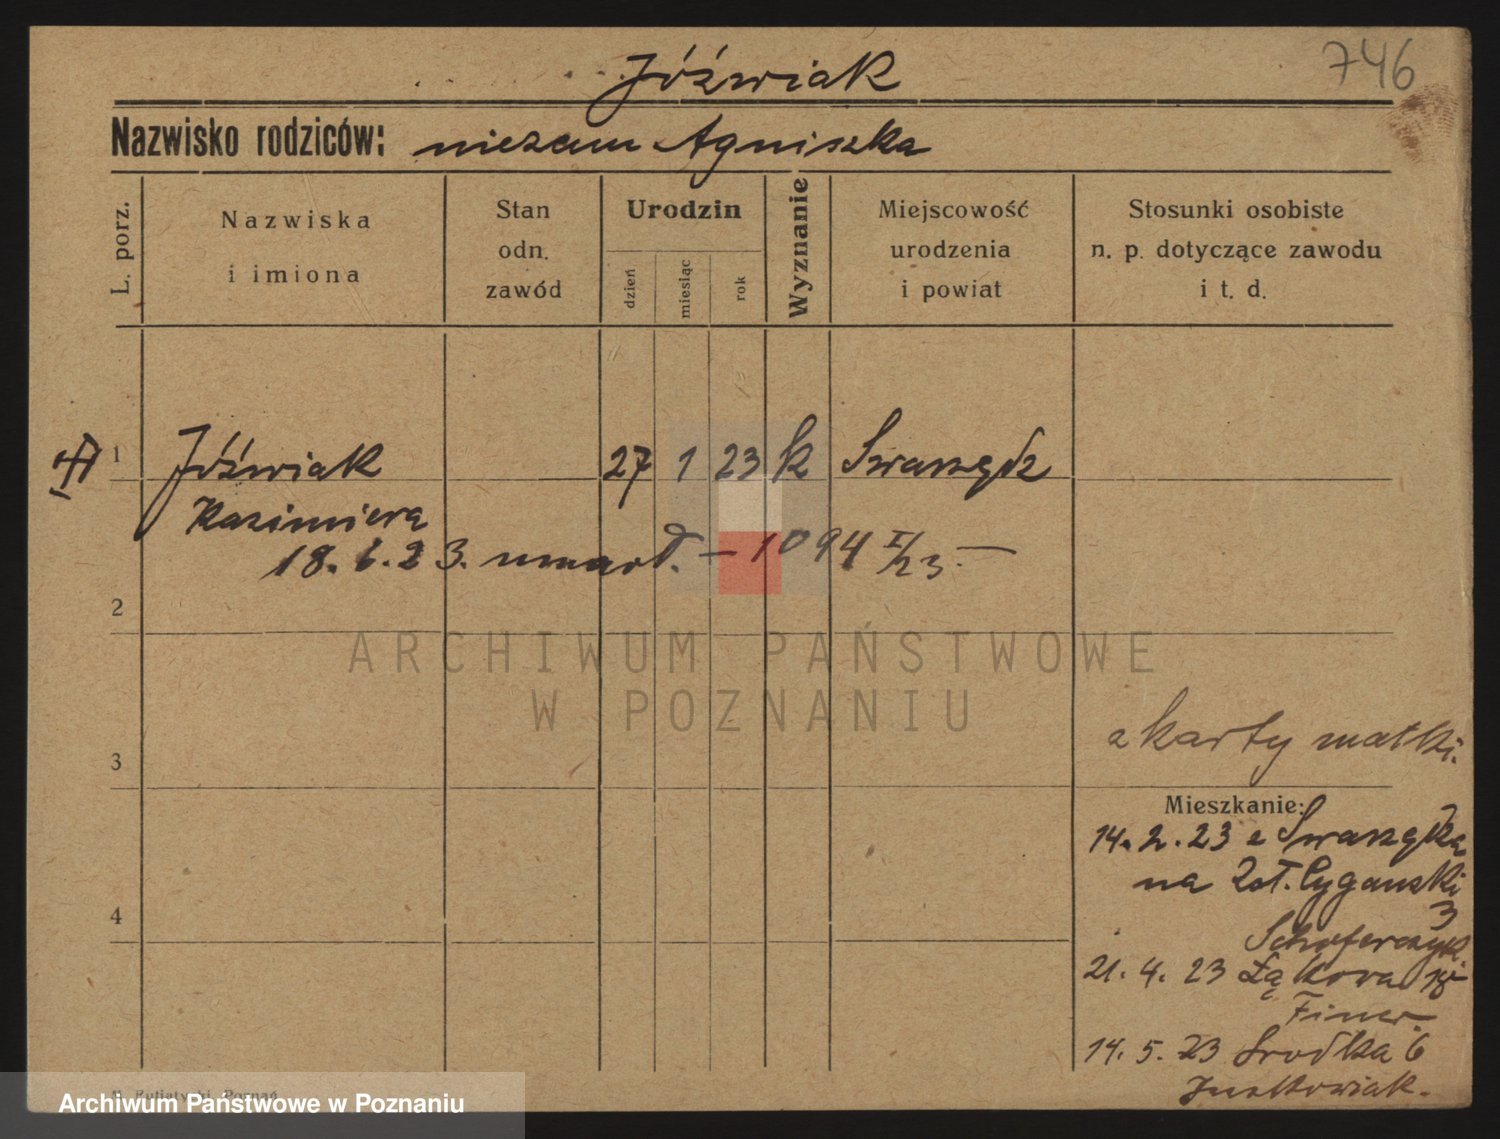 746
Jóźwiak
Nazwisko rodziców: niezam Agniszka
L. porz.
Nazwiska
i imiona
Stan
odn.
zawód
Urodzin
dzień
miesiąc
rok
Wyznanie
Miejscowość
urodzenia
i powiat
Stosunki osobiste
n. p. dotyczące zawodu
i t. d.
1 Jóźwiak 27 1 23 k Swarzędz
Kazimiera
18. 6. 23. umarł. — 1094 I/23. —
2
ARCHIWUM PAŃSTWOWE
W POZNANIU
z karty matki.
3
Mieszkanie:
14. 2. 23 z Swarzędza
na Zoł. Cyganski
3
4
21. 4. 23 Łąkowa 18
14. 5. 23 Srodka 6
Poznań
Archiwum Państwowe w Poznaniu